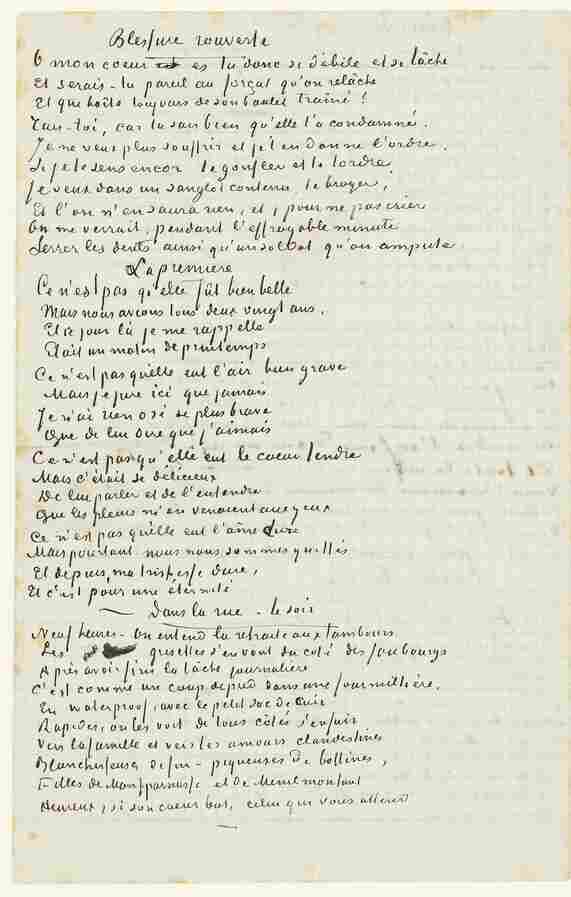 Blessure rouverte
O mon coeur es tu donc si débile et si lâche
Et serais-tu pareil au forçat qu'on relâche
Et qui boite toujours de son boulet traîné !
Tais-toi, car tu sais bien qu'elle t'a condamné.
Je ne veux plus souffrir et je t'en donne l'ordre.
Si je te sens encor te gonfler et te tordre
Je veux dans un sanglot contenu, te broyer,
Et l'on n'en saura rien, et, pour ne pas crier
On me verrait, pendant l'effroyable minute
Serrer les dents ainsi qu'un soldat qu'on ampute.
La première
Ce n'est pas qu'elle fût bien belle
Mais nous avions tous deux vingt ans.
Et ce jour là je me rappelle
Etait un matin de printemps
Ce n'est pas qu'elle eut l'air bien grave
Mais je jure ici que jamais
Je n'ai rien osé de plus brave
Que de lui dire que j'aimais
Ce n'est pas qu'elle eut le coeur tendre
Mais c'était si délicieux
De lui parler et de l'entendre
Que les pleurs m'en venaient aux yeux
Ce n'est pas qu'elle eut l'âme dure
Mais pourtant nous nous sommes quittés
Et depuis, ma tristesse dure,
Et c'est pour une éternité
Dans la rue - le soir
Neuf heures - On entend la retraite aux tambours
Les grisettes s'en vont du coté des faubourgs
Après avoir fini la tâche journalière
C'est comme un coup de pied dans une fourmillière.
En waterproof, avec le petit sac de cuir
Rapides, on les voit de tous côtés s'enfuir
Vers la famille et vers les amours clandestines
Blanchisseuses de fin - piqueuses de bottines,
Filles de Montparnasse et de Menilmontant
Heureux, si son coeur bat, celui qui vous attend